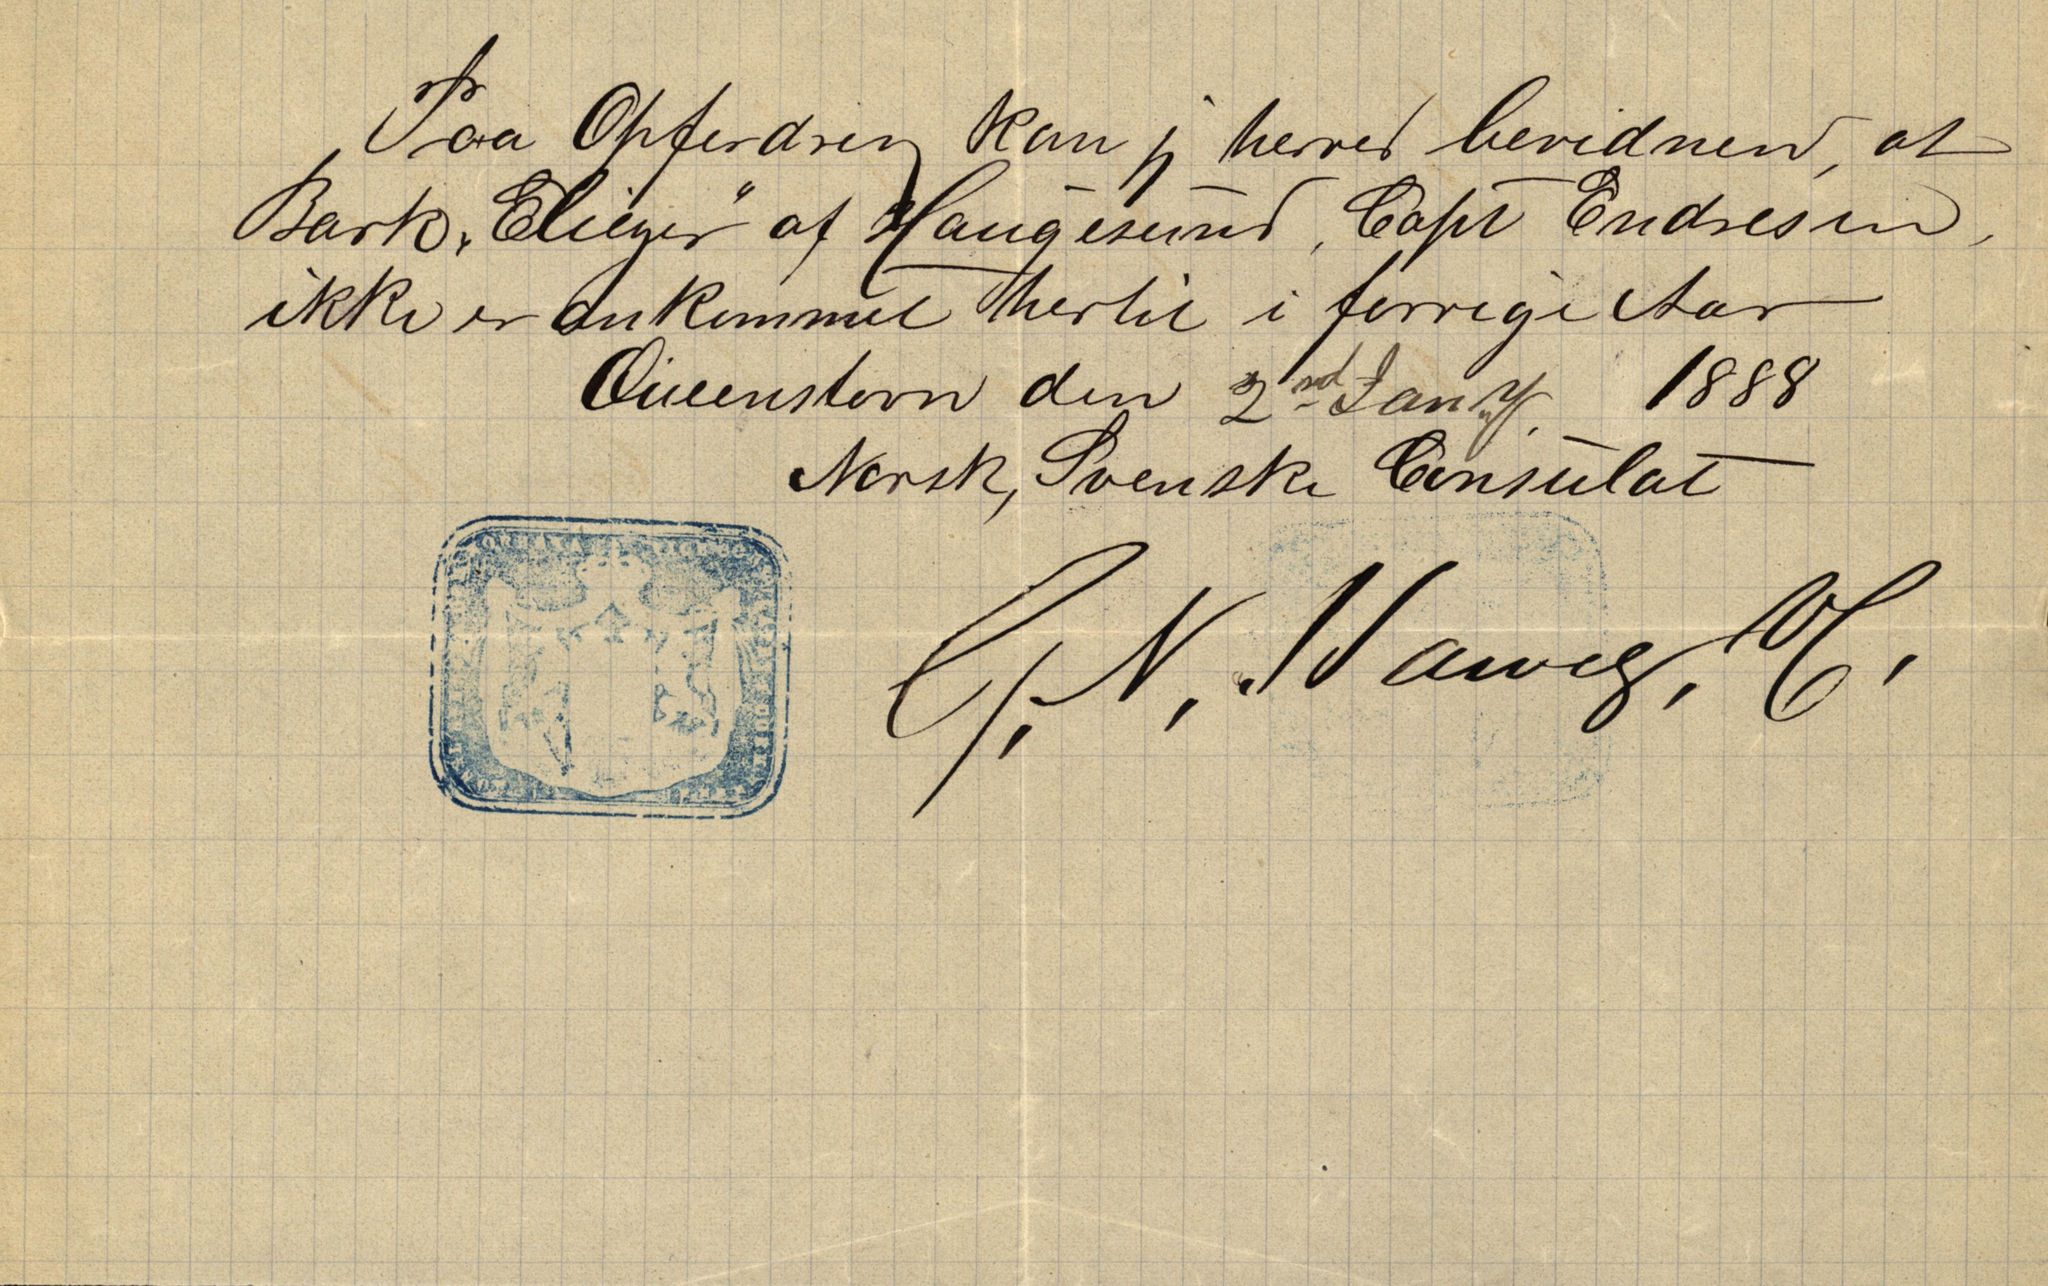 Paa Opferdring kan jj herved bevidnen, at
Bark „Eliezer" af Haugesund, Capt Endresen,
ikke er ankommet hertil i forrige Aar
Queenstown den 2nd Jany 1888
Norsk, Svenske Consulat
G. N. Harvey, V. C.